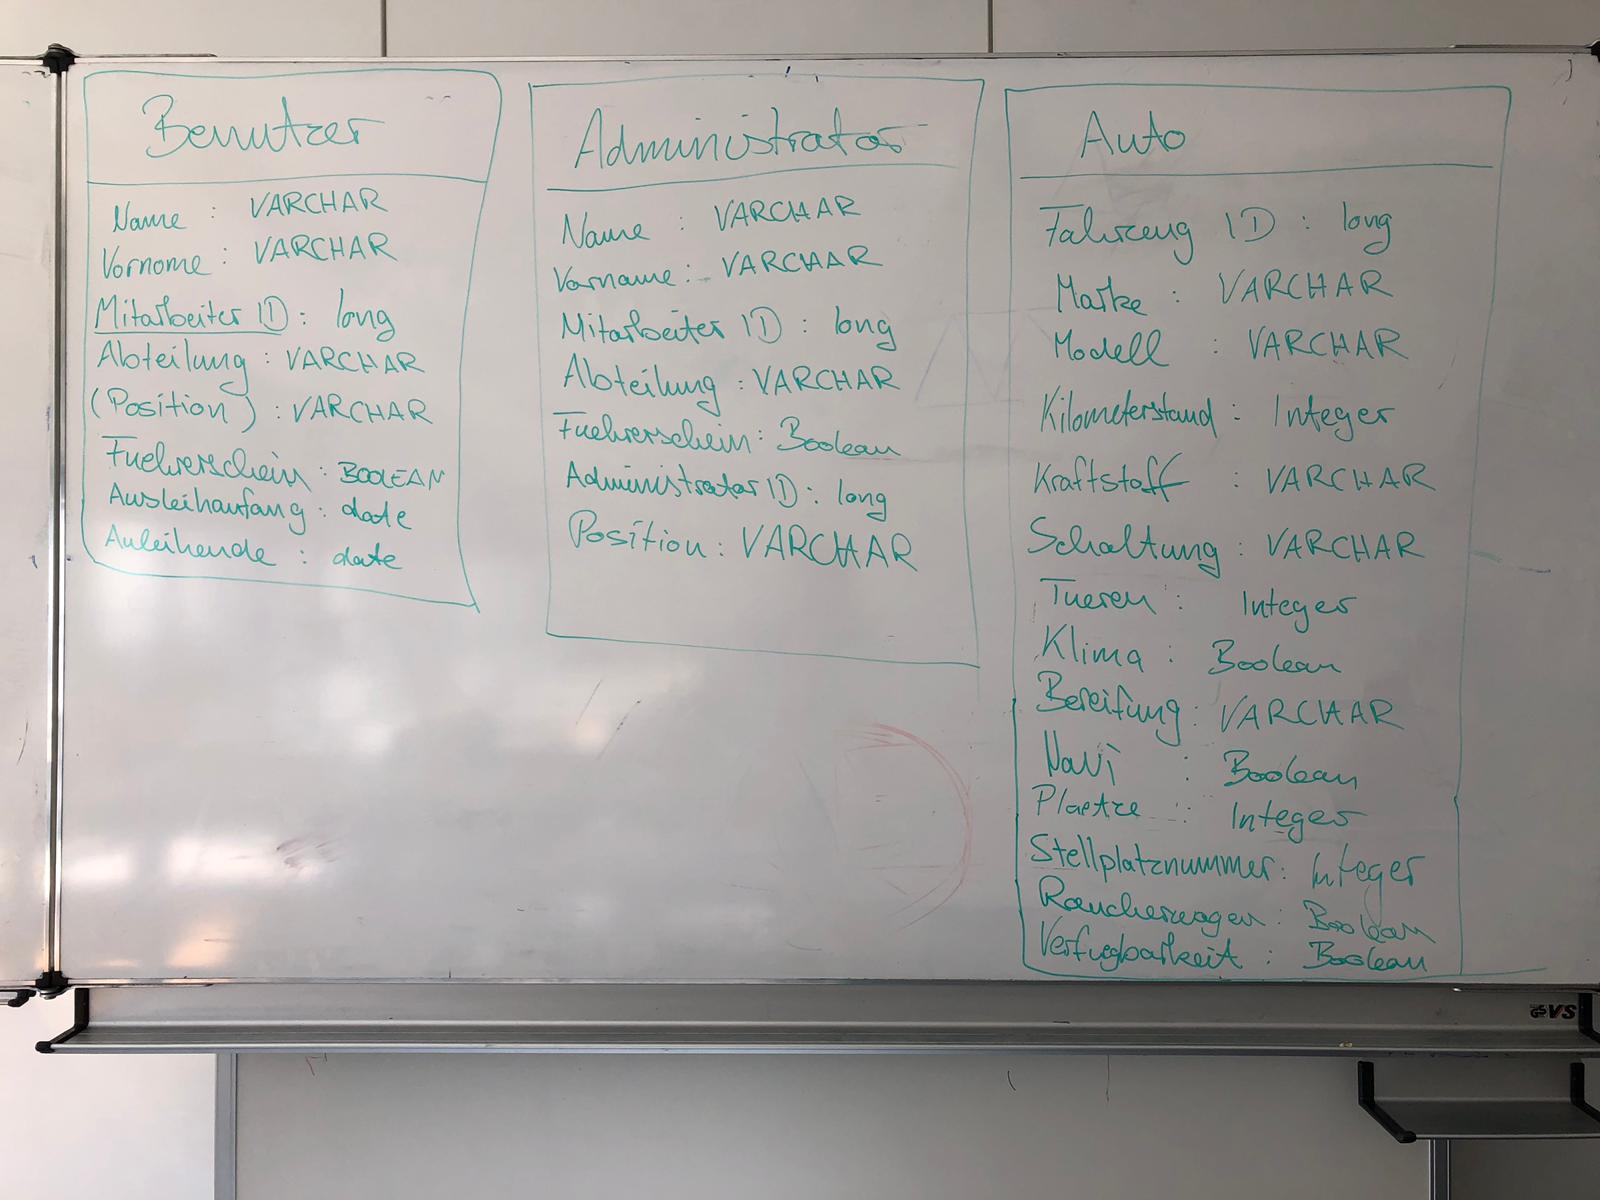 Benutzer
Name : VARCHAR
Vorname : VARCHAR
Mitarbeiter ID : long
Abteilung : VARCHAR
(Position) : VARCHAR
Fuehrerschein : BOOLEAN
Ausleihanfang : date
Auleihende : date
Administrator
Name : VARCHAR
Vorname : VARCHAR
Mitarbeiter ID : long
Abteilung : VARCHAR
Fuehrerschein : Boolean
Administrator ID : long
Position : VARCHAR
Auto
Fahrzeug ID : long
Marke : VARCHAR
Modell : VARCHAR
Kilometerstand : Integer
Kraftstoff : VARCHAR
Schaltung : VARCHAR
Tueren : Integer
Klima : Boolean
Bereifung : VARCHAR
Navi : Boolean
Plaetze : Integer
Stellplatznummer : Integer
Raucherwagen : Boolean
Verfuegbarkeit : Boolean
VS